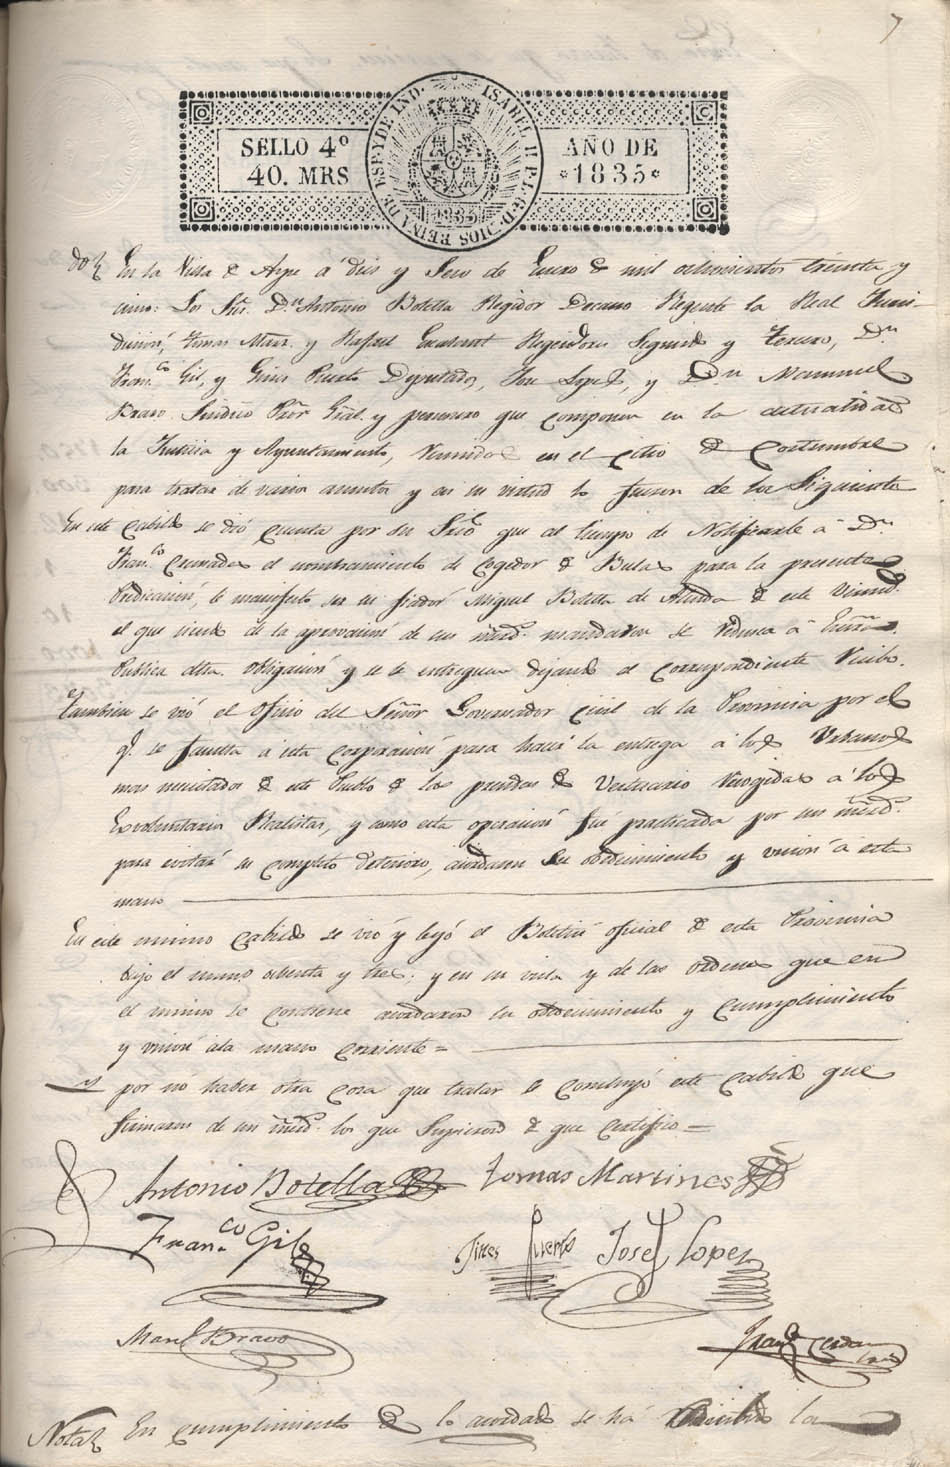 7
SELLO 4º
40. MRS
ISABEL II P. L. G. D. DIOS REINA DE ESP. Y DE IND.
1835
AÑO DE
1835
En la Villa de Aspe a diez y Seis de Enero de mil ochocientos treinta y
cinco: Los Sres. Dn. Antonio Botella Regidor Decano Regente la Real Juris-
dicción, Tomas Marz. y Rafael Regidores Segundo y tercero, Dn.
Franco. Gil, y Gines Puerto Diputados, Jose Lopez, y Dn. Manuel
Bravo Sindico Pror. Gral. y personero que componen en la actualidad
la Justicia y Ayuntamiento, Reunidos en el citio de Costumbre
para tratar de varios asuntos y en su virtud lo fueron de los Siguientes
En este Cabildo se dió cuenta por su Srio. que al tiempo de Notificarle a Dn.
Franco. el nombramiento de Cogedor de Bulas para la presente
Predicación, le manifesto ser su fiador Miguel Botella de de este Vecind.
el que siendo de la aprovación de sus mrds. mandaron se reduzca a Escra.
Publica dha. obligación y se le entreguen dejando el correspondiente Recibo.
Tambien se vió el oficio del Señor Governador Civil de la Provincia por el
q. se faculta a esta corporación para hacer la entrega a los Urbanos
mas necesitados de este Pueblo de las prendas de Vestuario Recogidas a los
Exvoluntarios Realistas, y como esta operación fué practicada por sus mrds.
para evitar su completo deterioro, acordaron su obedecimiento y unión a esta
mano
En este mismo Cabildo se vió y leyó el Boletin oficial de esta Provincia
bajo el numo. ochenta y tres; y en su vista y de las ordenes que en
el mismo se contiene acordaron su obedecimiento y cumplimiento
y unión a la mano corriente =
y por no haber otra cosa que tratar se concluyó este Cabildo que
firmaron de sus mrds. los que Supieron de que Certifico =
Antonio Botella Tomas Martines
Franco. Gil Gines Puerto Josef Lopez
Manl. Bravo
Franco. Cerdan
Srio
Nota En cumplimiento de lo acordado se há recibido la